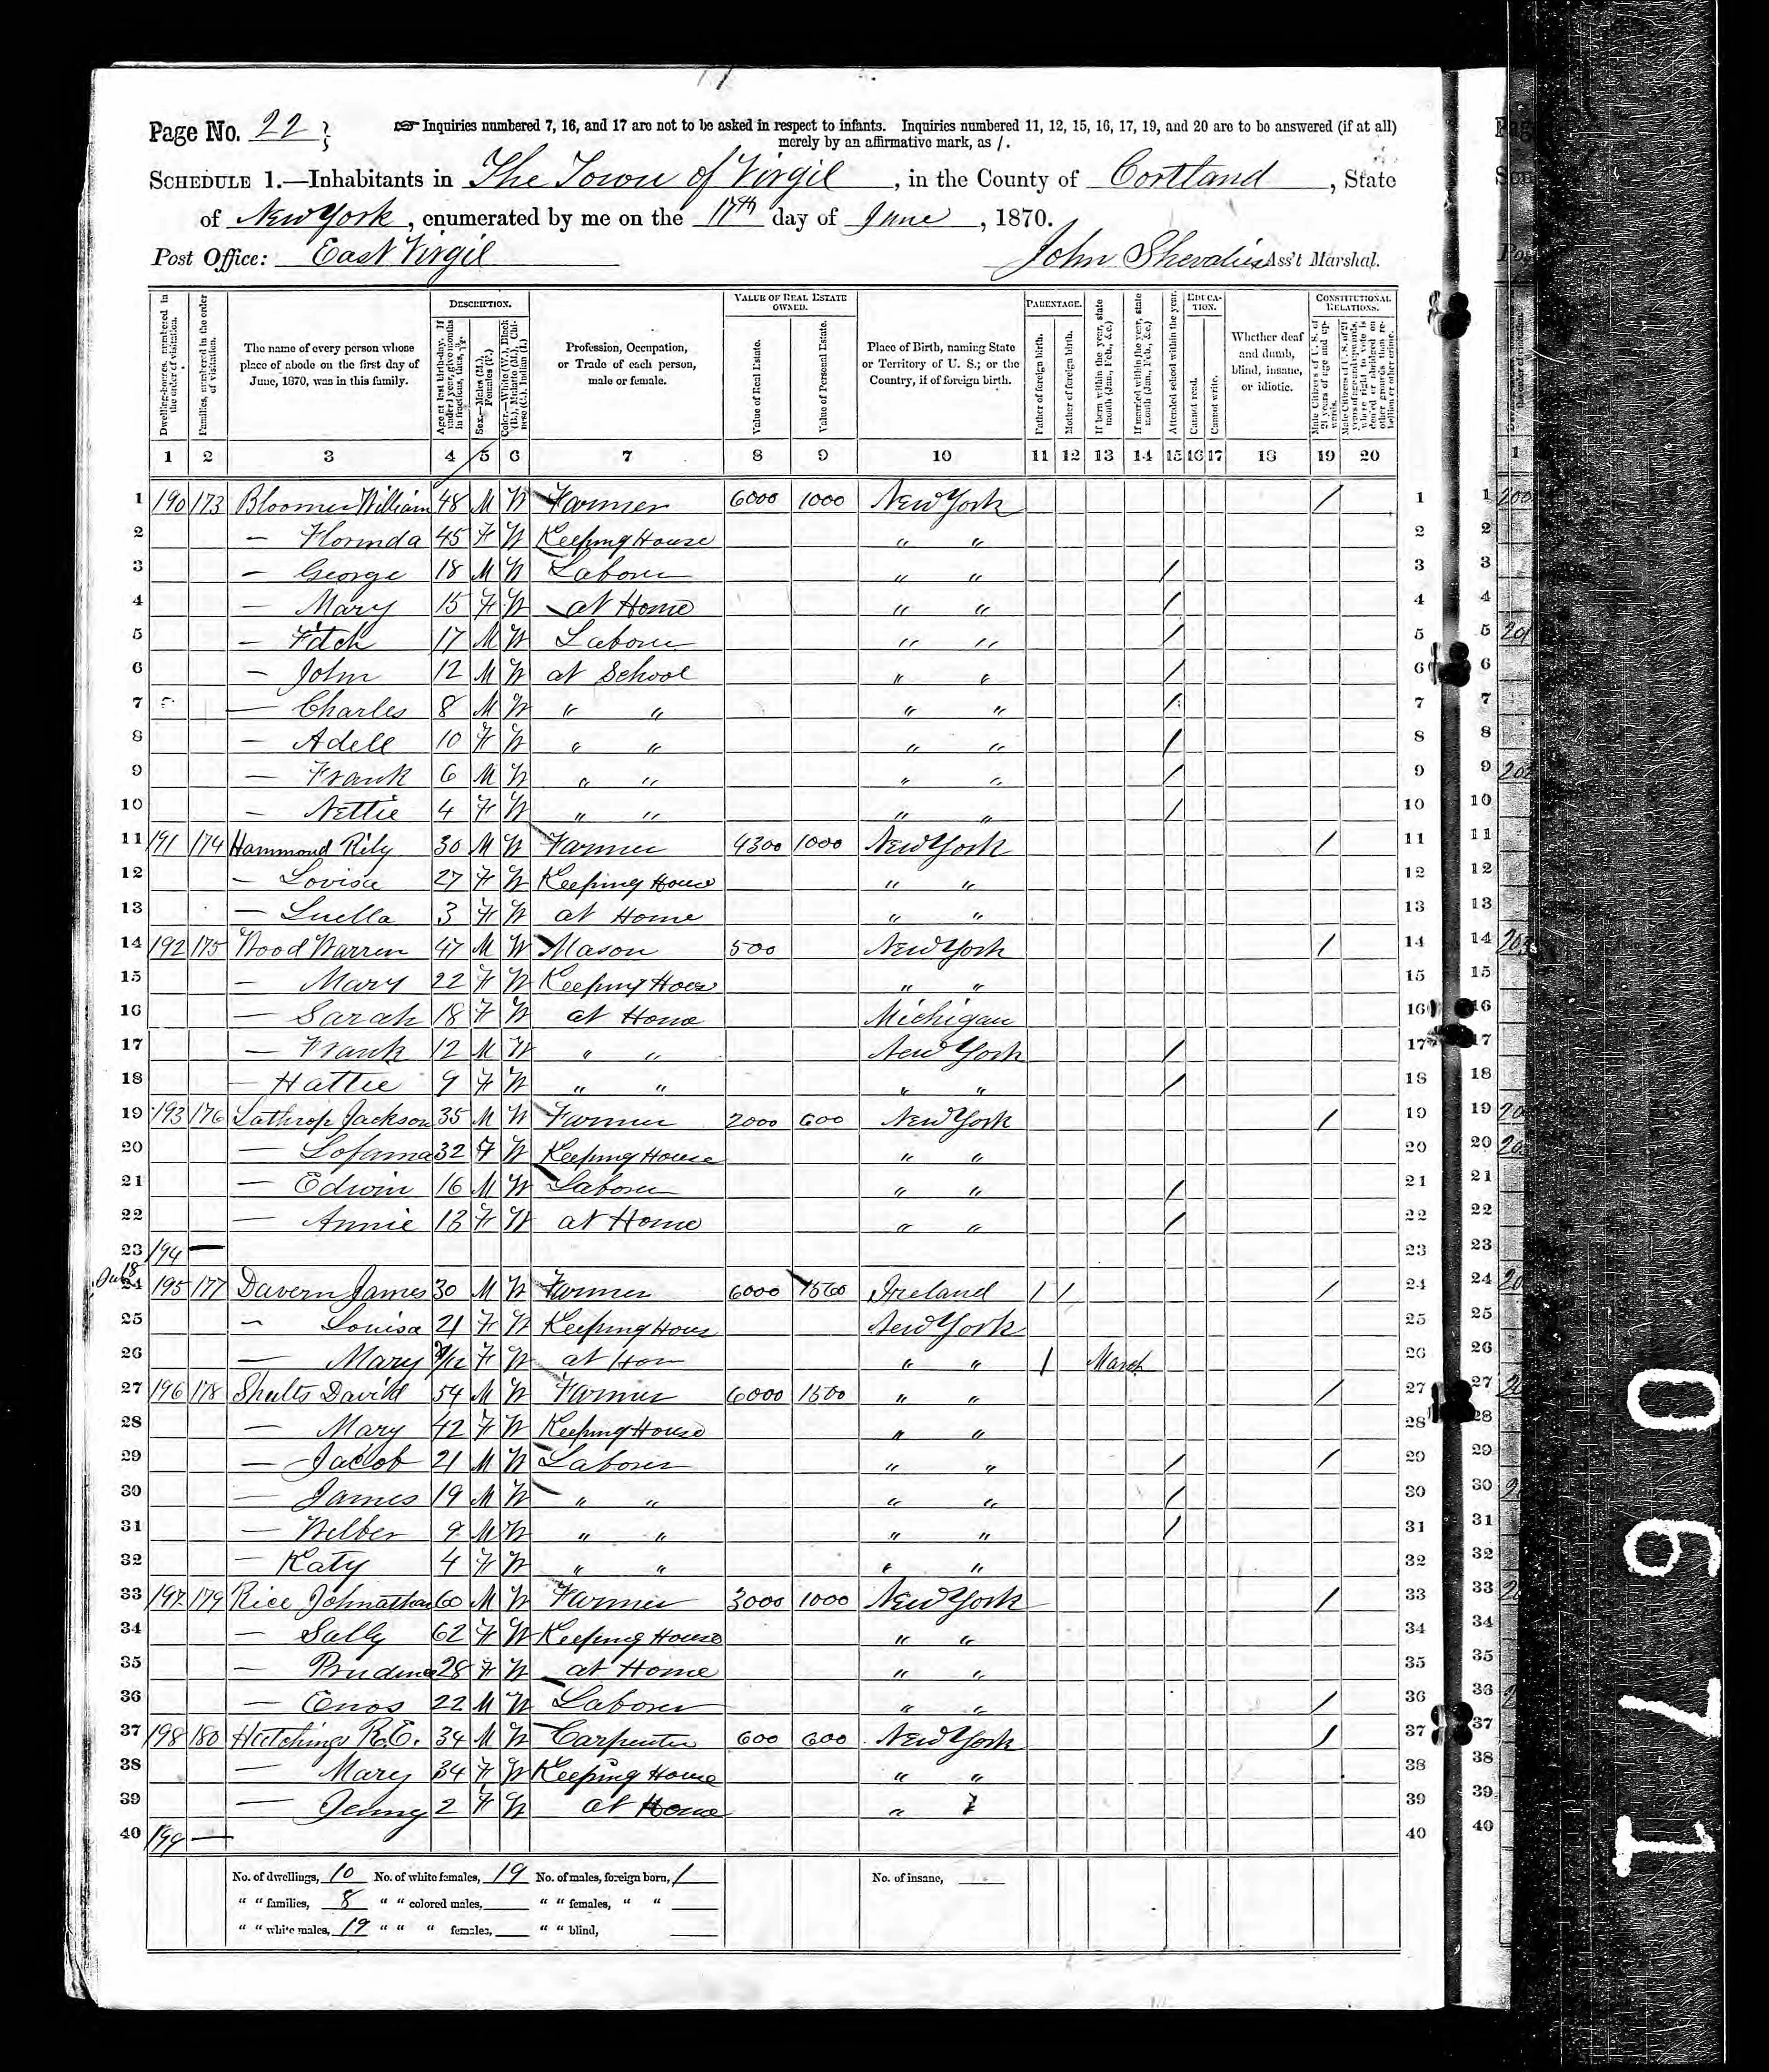 Page No. 22
Inquiries numbered 7, 16, and 17 are not to be asked in respect to infants. Inquiries numbered 11, 12, 15, 16, 17, 19, and 20 are to be answered (if at all)
merely by an affirmative mark, as /.
SCHEDULE 1.—Inhabitants in The Town of Virgil, in the County of Cortland, State
of New York, enumerated by me on the 17th day of June, 1870.
Post Office: East Virgil John Ass't Marshal.
Dwelling-houses, numbered in the order of visitation.
Families, numbered in the order of visitation.
The name of every person whose place of abode on the first day of June, 1870, was in this family.
DESCRIPTION.
Age at last birth-day. If under 1 year, give months in fractions, thus, 3/12.
Sex.—Males (M.), Females (F.)
Color.—White (W.), Black (B.), Mulatto (M.), Chinese (C.), Indian (I.)
Profession, Occupation, or Trade of each person, male or female.
VALUE OF REAL ESTATE OWNED.
Value of Real Estate.
Value of Personal Estate.
Place of Birth, naming State or Territory of U. S.; or the Country, if of foreign birth.
PARENTAGE.
Father of foreign birth.
Mother of foreign birth.
If born within the year, state month (Jan., Feb., &c.)
If married within the year, state month (Jan., Feb., &c.)
Attended school within the year.
EDUCATION.
Cannot read.
Cannot write.
Whether deaf and dumb, blind, insane, or idiotic.
CONSTITUTIONAL RELATIONS.
Male Citizens of U. S. of 21 years of age and upwards.
Male Citizens of U. S. of 21 years of age and upwards, whose right to vote is denied or abridged on other grounds than rebellion or other crime.
1 2 3 4 5 6 7 8 9 10 11 12 13 14 15 16 17 18 19 20
1 190 173 Bloomer William 48 M W Farmer 6000 1000 New York / 1
2 — Florinda 45 F W Keeping House " " 2
3 — George 18 M W Laborer " " / 3
4 — Mary 15 F W at Home " " / 4
5 — Fitch 17 M W Laborer " " / 5
6 — John 12 M W at School " " / 6
7 — Charles 8 M W " " " " / 7
8 — Adell 10 F W " " " " / 8
9 — Frank 6 M W " " " " / 9
10 — Nettie 4 F W " " " " / 10
11 191 174 Hammond Rily 30 M W Farmer 4300 1000 New York / 11
12 — Lovisa 27 F W Keeping House " " 12
13 — Luella 3 F W at Home " " 13
14 192 175 Wood Warren 47 M W Mason 500 New York / 14
15 — Mary 22 F W Keeping House " " 15
16 — Sarah 18 F W at Home Michigan 16
17 — Frank 12 M W " " New York / 17
18 — Hattie 9 F W " " " " / 18
19 193 176 Lathrop Jackson 35 M W Farmer 2000 600 New York / 19
20 — 32 F W Keeping House " " 20
21 — Edwin 16 M W Laborer " " / 21
22 — Annie 13 F W at Home " " / 22
23 194 — 23
18
24 195 177 Davern James 30 M W Farmer 6000 1500 Ireland / / / 24
25 — Louisa 21 F W Keeping Hous New York 25
26 — Mary F W at Hom " " / March 26
27 196 178 Shults David 54 M W Farmer 6000 1500 " " / 27
28 — Mary 42 F W Keeping House " " 28
29 — Jacob 21 M W Laborer " " / / 29
30 — James 19 M W " " " " / 30
31 — Wilber 9 M W " " " " / 31
32 — Katy 4 F W " " " " 32
33 197 179 Rice Johnathan 60 M W Farmer 3000 1000 New York / 33
34 — Sally 62 F W Keeping House " " 34
35 — Prudence 28 F W at Home " " 35
36 — Enos 22 M W Laborer " " / 36
37 198 180 Hutchings R.E. 34 M W Carpenter 600 600 New York / 37
38 — Mary 34 F W Keeping House " " 38
39 — Jenny 2 F W at Home " " 39
40 199 — 40
No. of dwellings, 10 No. of white females, 19 No. of males, foreign born, 1 No. of insane,
" " families, 8 " " colored males, " " females, " "
" " white males, 19 " " " females, " " blind,
1790